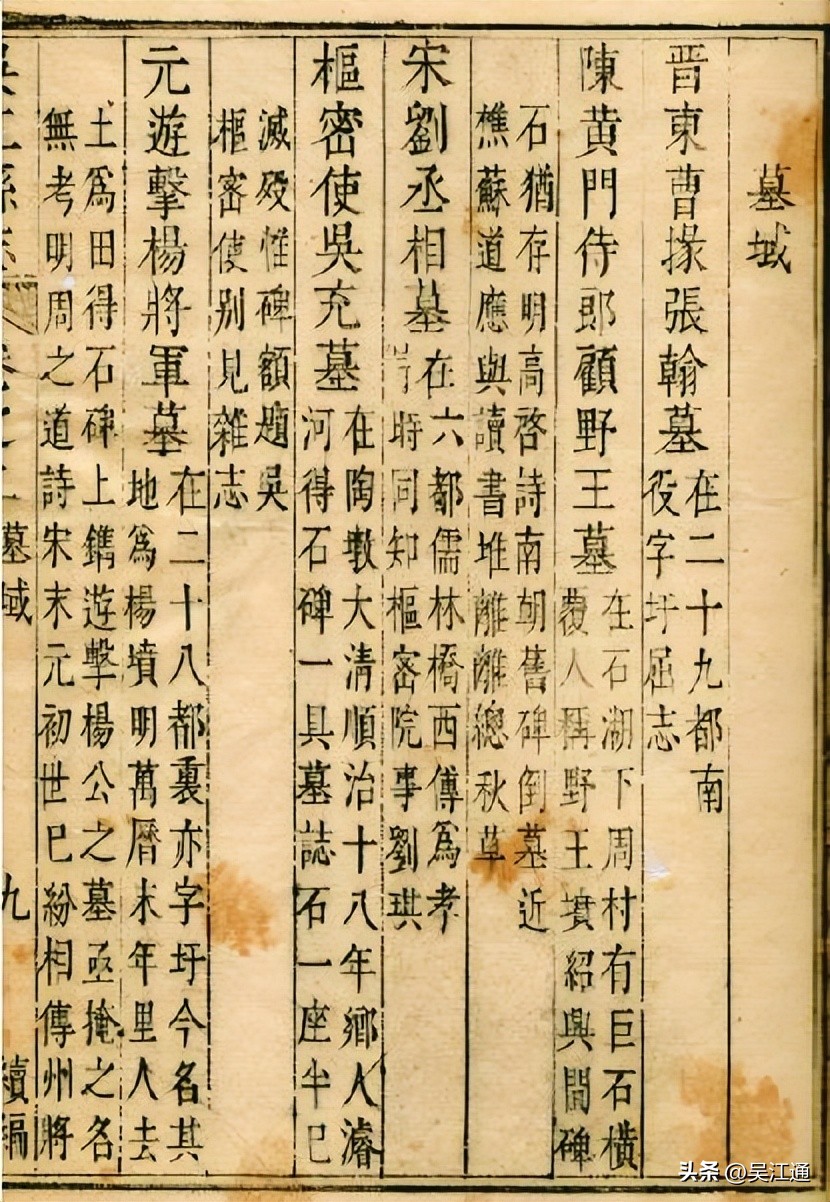 墓域
晋東曹掾張翰墓在二十九都南
役字圩屈志
陳黃門侍郎顧野王墓在石湖下周村有巨石橫
覆人稱野王墳紹興間碑
石猶存明高啓詩南朝舊碑倒墓近
樵蘇道應與讀書堆離離總秋草
宋劉丞相墓在六都儒林橋西傅爲孝
時同知樞密院事劉珙
樞密使吳充墓在陶墩大清順治十八年鄉人濬
河得石碑一具墓誌石一座半已
滅殁惟碑額題吳
樞密使别見雜志
元遊擊楊將軍墓在二十八都裏亦字圩今名其
地爲楊墳明萬曆末年里人去
土爲田得石碑上鐫遊擊楊公之墓亟掩之名
無考明周之道詩宋末元初世已紛相傳州將
吳江縣志 卷之二 墓域 九 續編
头条 @吴江通